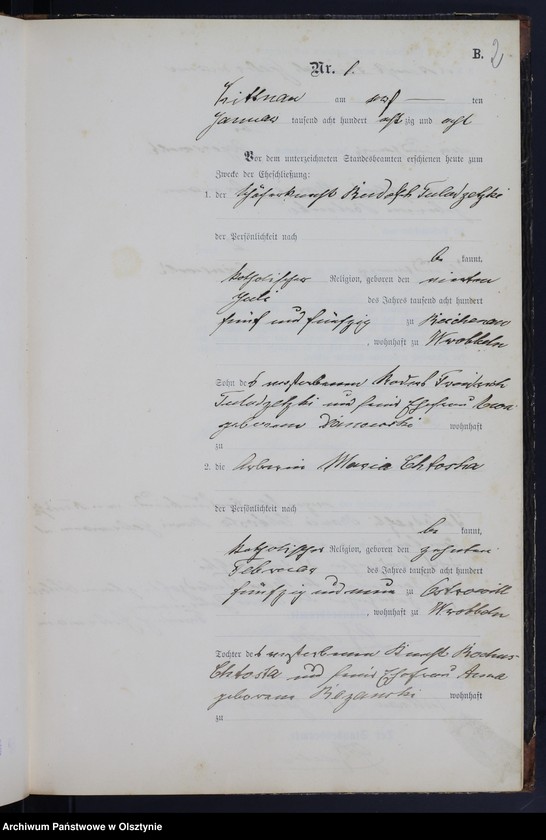 B. 2
Nr. 1.
am acht ten
Januar tausend acht hundert achtzig und acht
Vor dem unterzeichneten Standesbeamten erschienen heute zum
Zwecke der Eheschließung:
1. der Rudolph
der Persönlichkeit nach
be kannt,
katholischer Religion, geboren den vierten
Juli des Jahres tausend acht hundert
fünf und fünfzig zu Reichenau
, wohnhaft zu Wrobbeln
Sohn des verstorbenen
und seine Ehefrau
geborenen wohnhaft
zu
2. die Arbeiterin Maria Chłosta
der Persönlichkeit nach
be kannt,
katholischer Religion, geboren den zehnten
Februar des Jahres tausend acht hundert
fünfzig und neun zu
, wohnhaft zu Wrobbeln
Tochter des verstorbenen Knecht Rochus
Chłosta und seine Ehefrau Anna
geborenen wohnhaft
zu
Archiwum Państwowe w Olsztynie